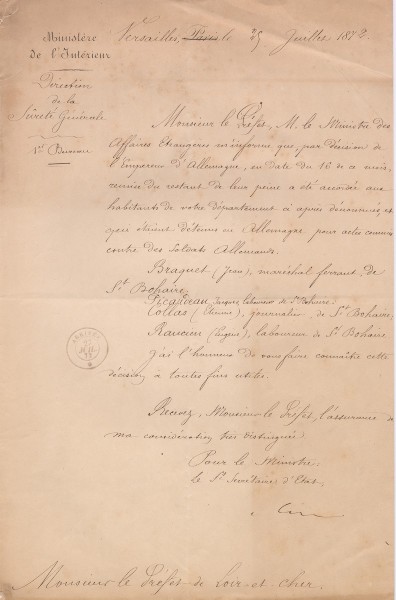 Ministère
de l'Intérieur
Direction
de la
Sûreté Générale
1er Bureau
Versailles, Paris le 25 Juillet 1872
Monsieur le Préfet, M. le Ministre des
Affaires Etrangères m'informe que, par décision de
l'Empereur d'Allemagne, en date du 16 de ce mois,
remise du restant de leur peine a été accordée aux
habitants de votre département ci après dénommés et
qui étaient détenus en Allemagne pour actes commis
contre des Soldats Allemands.
Braguet (Jean), maréchal ferrant, de
St Bohaire,
Jacques de St Bohaire.
Collas (Etienne), journalier, de St Bohaire,
(Eugène), laboureur de St Bohaire
J'ai l'honneur de vous faire connaître cette
décision, à toutes fins utiles.
Recevez, Monsieur le Préfet, l'assurance de
ma considération très distinguée.
Pour le Ministre,
le Ss Secrétaire d'Etat,
Monsieur le Préfet de Loir-et-Cher.